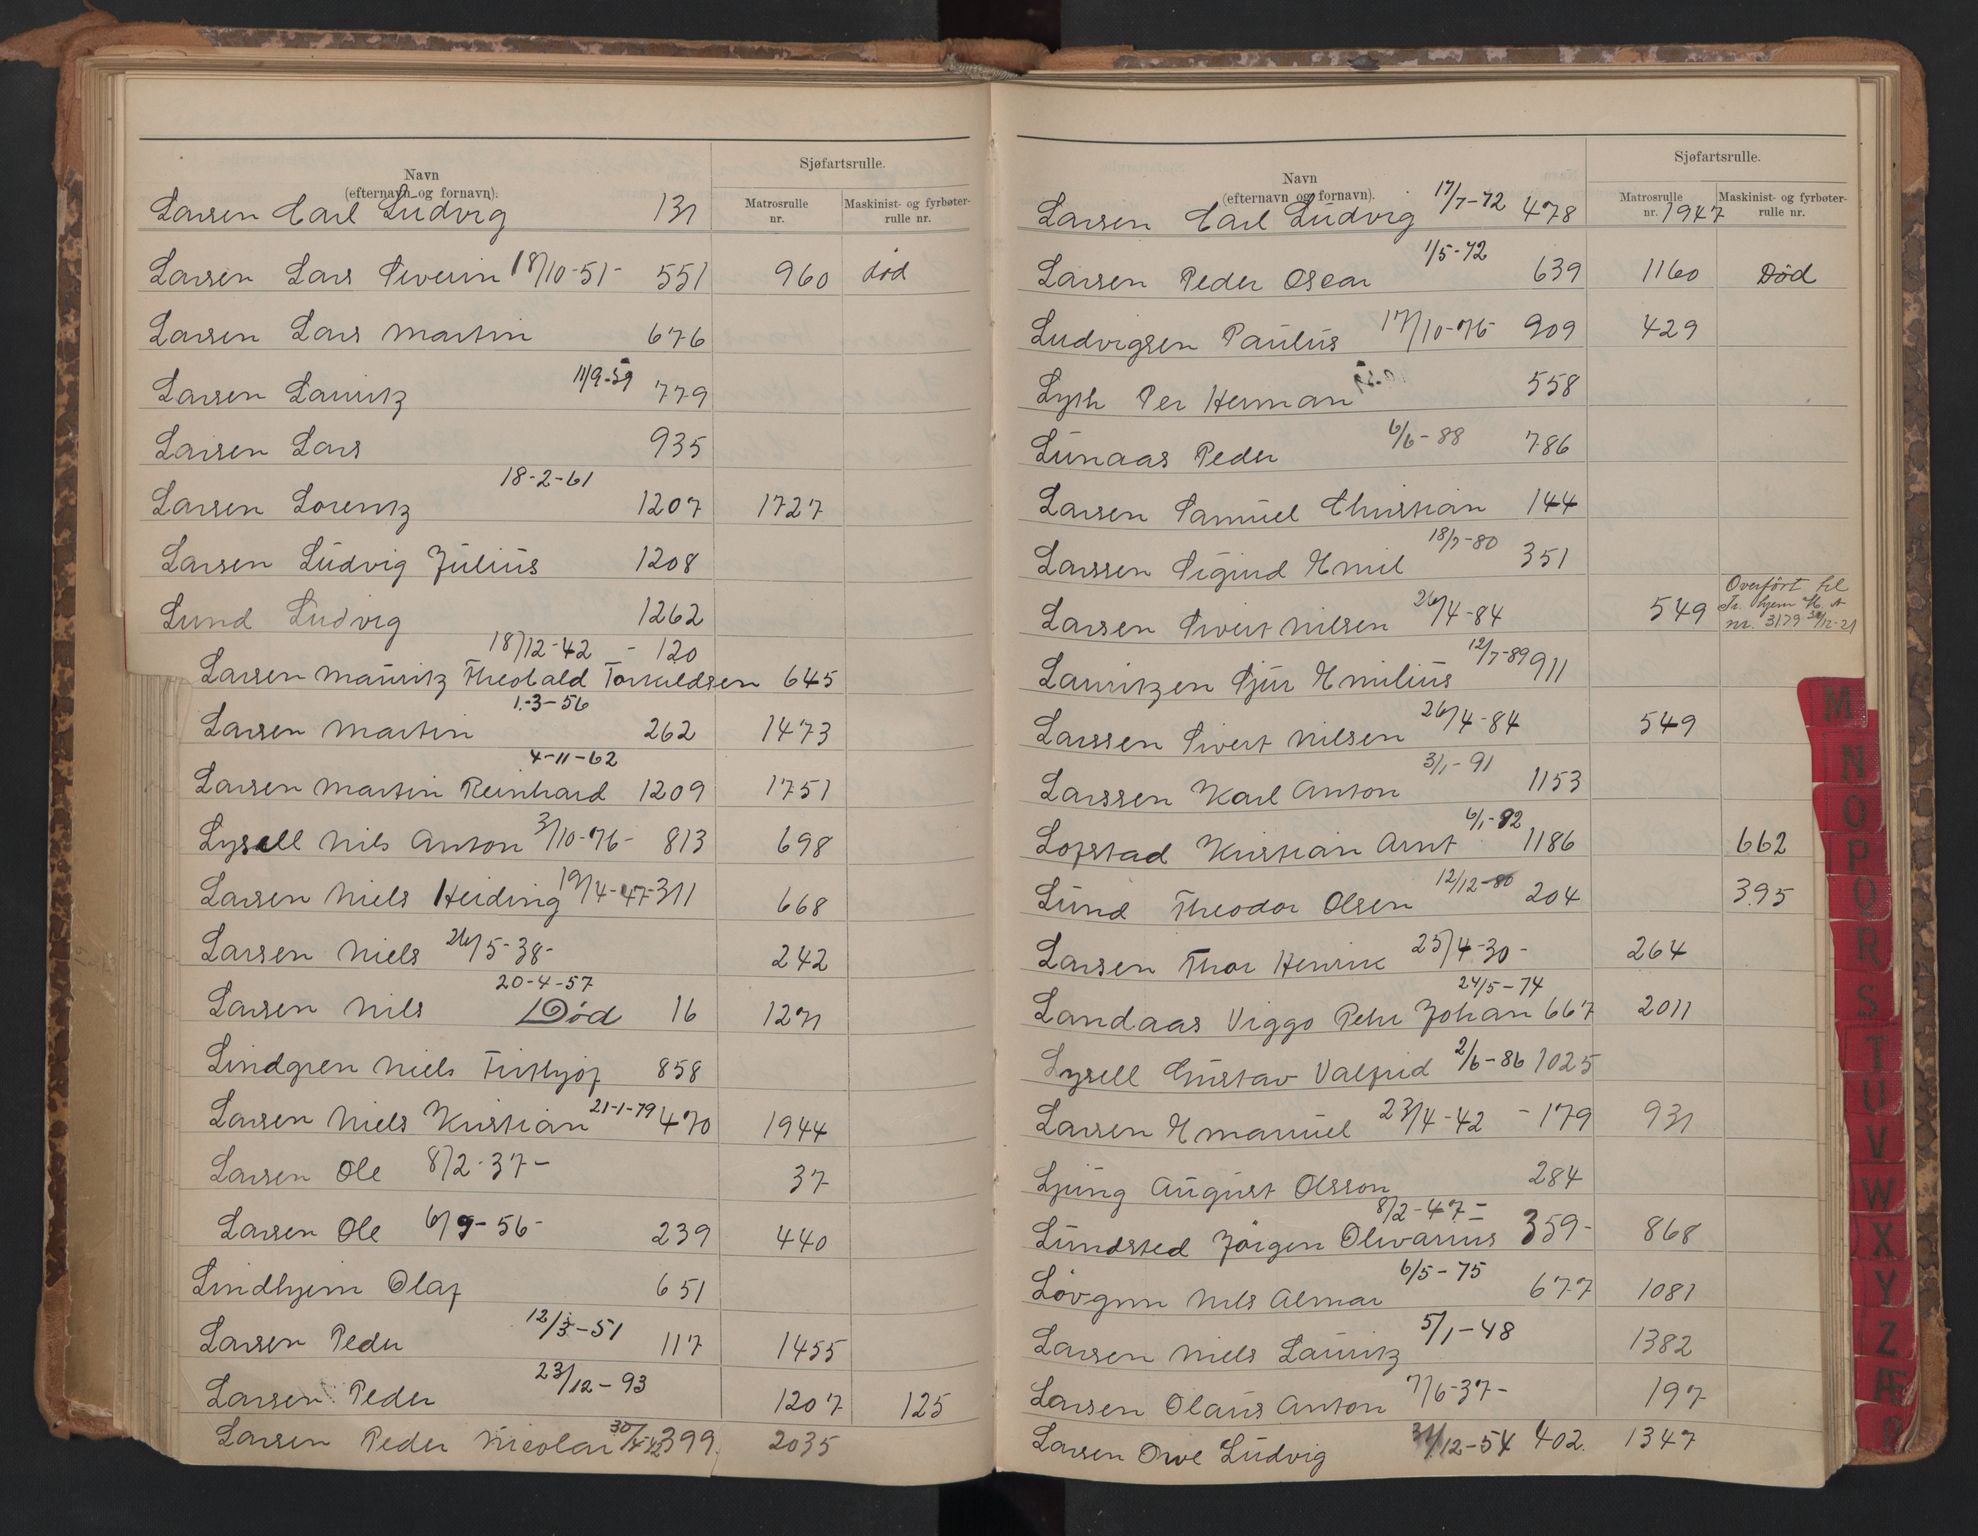 Navn
(efternavn og fornavn).
Sjøfartsrulle.
Matrosrulle nr.
Maskinist- og fyrbøter-rulle nr.
Larsen Carl Ludvig 131
Larsen Lars Severin 18/10-51- 551 960 død
Larsen Lars Martin 676
Larsen Lauritz 11/9-59 779
Larsen Lars 935
Larsen Lorentz 18-2-61 1207 1727
Larsen Ludvig Julius 1208
Lund Ludvig 1262
18/12-42 - 120
Larsen Mauritz Theobald Torkildsen 645
Larsen Martin 1-3-56 262 1473
Larsen Martin Reinhard 4-11-62 1209 1751
Lysell Nils Anton 3/10-76- 813 698
Larsen Niels Heiding 19/4-47- 311 668
Larsen Niels 26/5-38- 242
Larsen Nils 20-4-57 Død 16 1271
Lindgren Niels Frithjof 858
Larsen Niels Kristian 21-1-79 470 1944
Larsen Ole 8/2-37- 37
Larsen Ole 6/9-56- 239 440
Lindhjem Olaf 651
Larsen Peder 12/3-51 117 1455
Larsen Peder 23/12-93 1207 125
Larsen Peder Nicolai 399 2035
Navn
(efternavn og fornavn).
Sjøfartsrulle.
Matrosrulle nr.
Maskinist- og fyrbøter-rulle nr.
Larsen Carl Ludvig 17/7-72 478 1947
Larsen Peder Oscar 1/5-72 639 1160 Død
Ludvigsen Paulus 17/10-76 909 429
Lyth Per Herman 558
Lunaas Peder 6/6-88 786
Larsen Samuel Christian 144
Larssen Sigurd Emil 18/7-80 351
Larsen Sivert Nilsen 26/4-84 549 Overført til Tr.hjem nr. 3179 /12-21
Lauritzen Sjur Emilius 12/7-89 911
Larssen Sivert Nilsen 26/4-84 549
Larssen Karl Anton 3/1-91 1153
Lofstad Kristian Arnt 6/1-82 1186 662
Lund Theodor Olsen 12/12-80 204 395
Larsen Thor Henrik 25/4-30- 264
Landaas Viggo Petr Johan 24/5-74 667 2011
Lysell Gustav Valfrid 2/6-86 1025
Larsen Emanuel 23/4-42 - 179 931
Ljung August Olsson 284
Lundsted Jörgen Olivarius 8/2-47- 359- 868
Løvgren Nils Almar 6/5-75 677 1081
Larsen Niels Lauritz 5/1-48 1382
Larsen Olaus Anton 7/6-37- 197
Larsen Ove Ludvig 31/12-54 402. 1347
M
N
O
P
Q
R
S
T
U
V
W
X
Y
Z
Æ
Ø